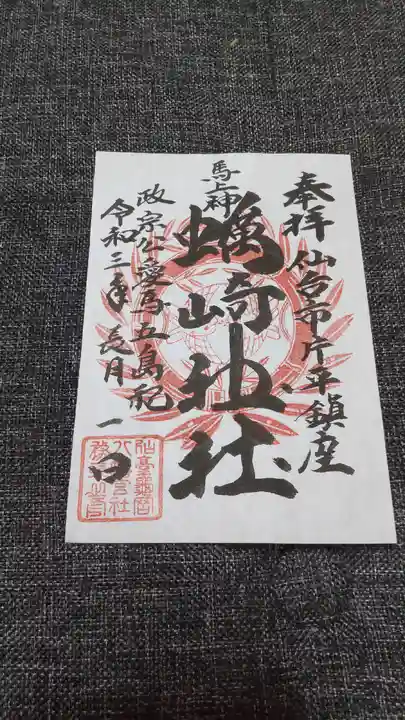 奉拝 仙台市片平鎮座
馬上神
蠣崎神社
政宗公愛馬五島祀
令和三年長月一日